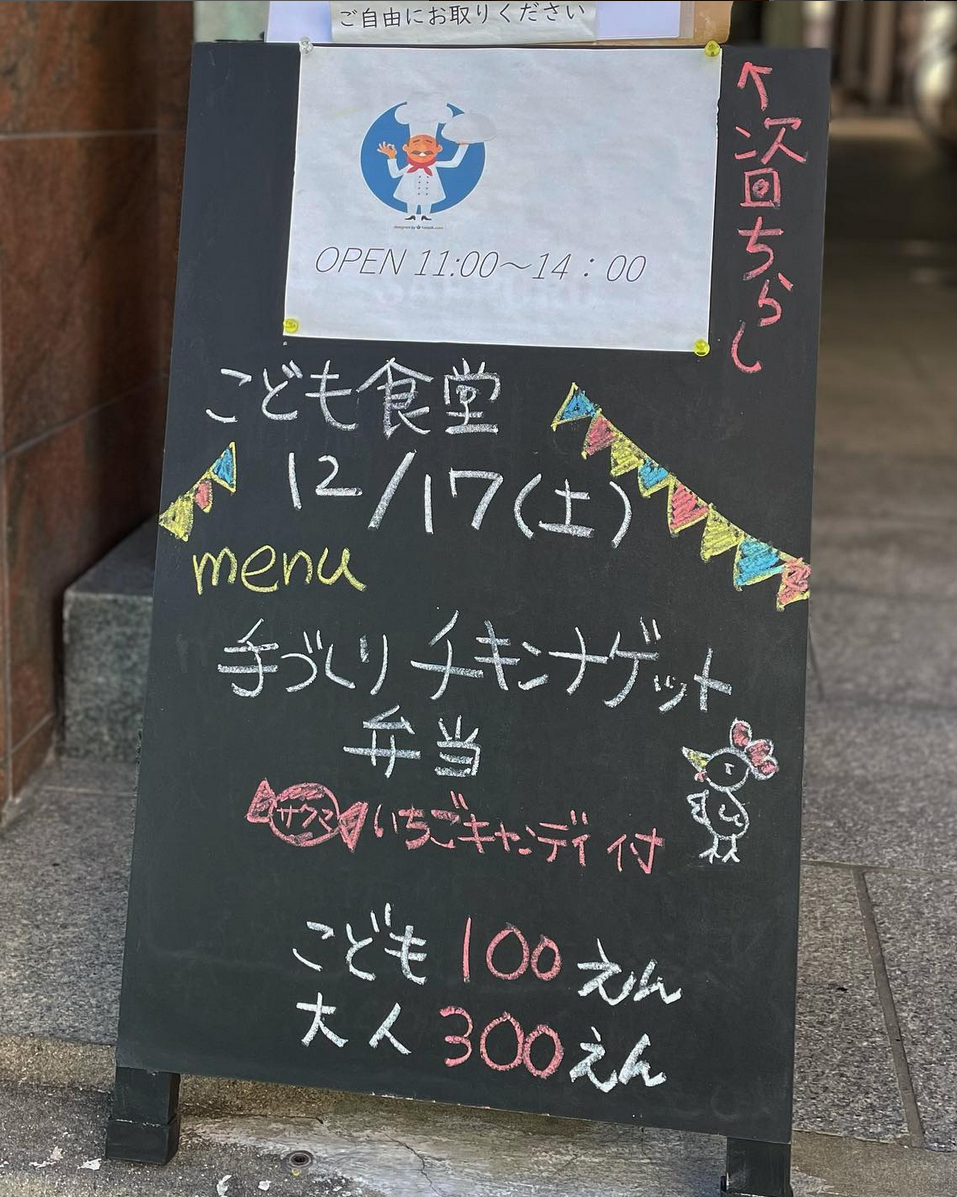 ご自由にお取りください
↑次回ちらし
OPEN 11:00～14：00
こども食堂
12/17(土)
menu
手づくりチキンナゲット
弁当
サクマ いちごキャンディ付
こども 100えん
大人 300えん